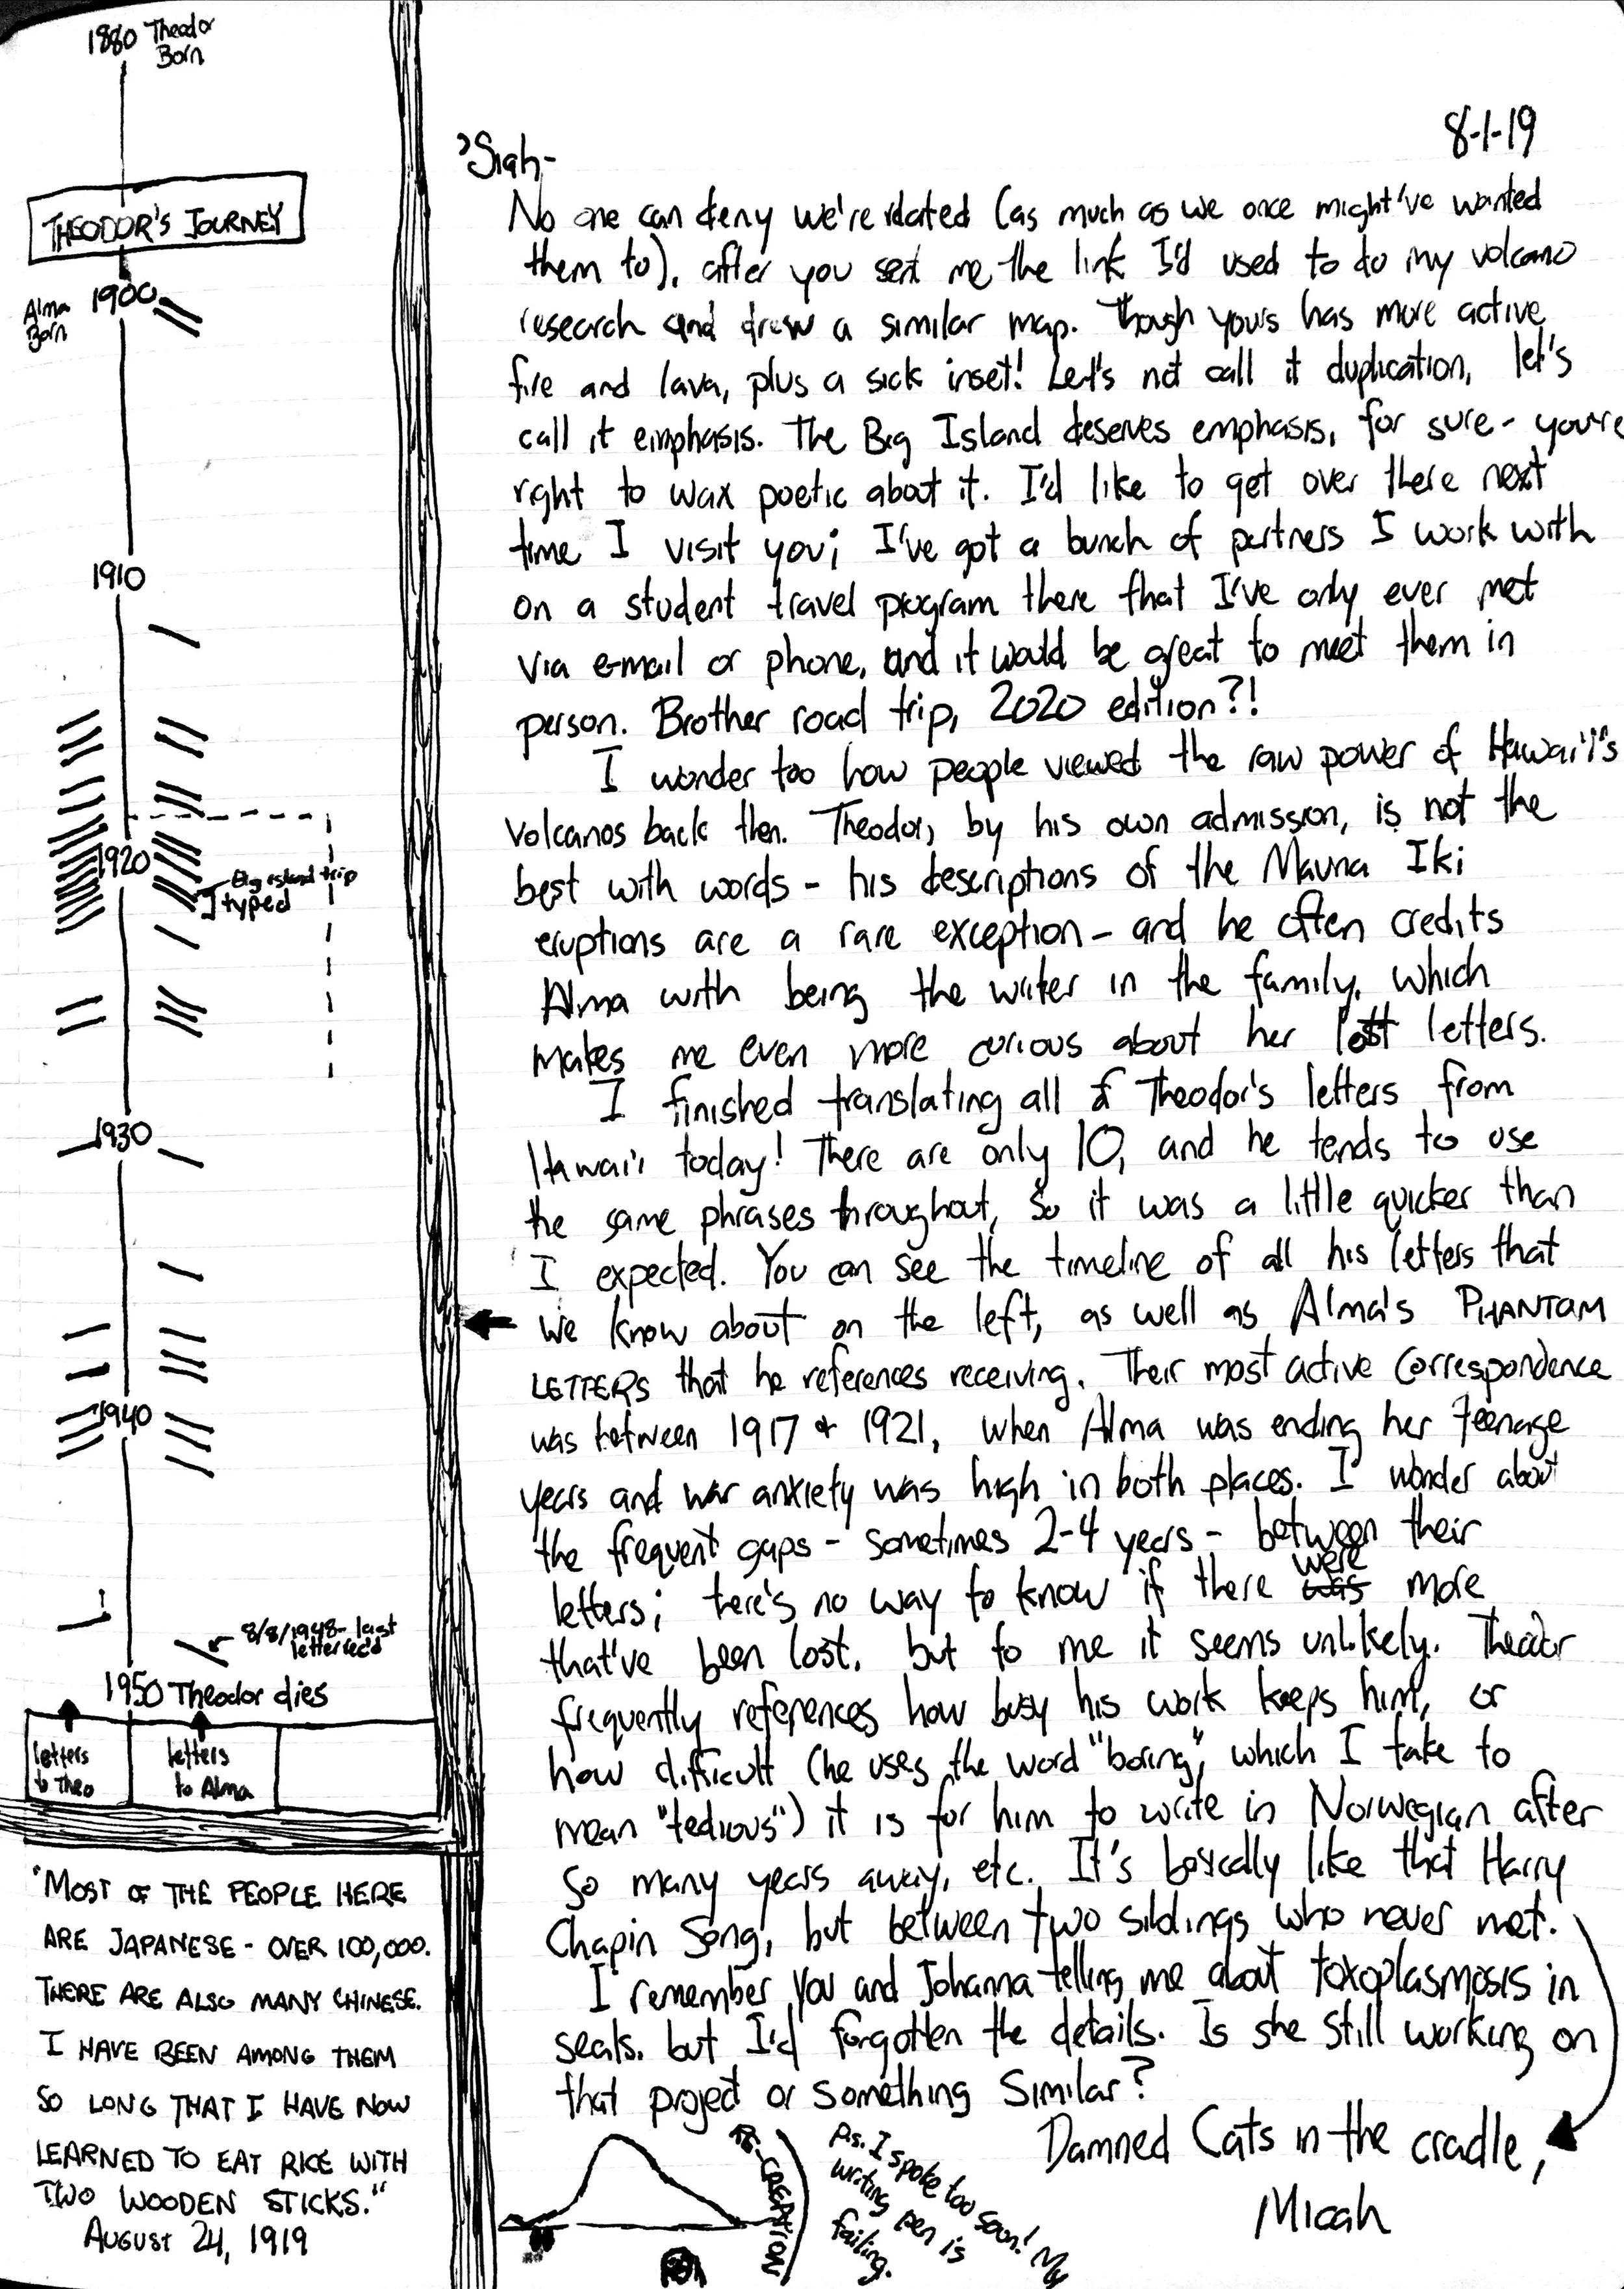 1880 Theodor
Born
THEODOR'S JOURNEY
Alma
Born
1900
1910
1920
Big island trip
typed
1930
1940
8/8/1948 - last
letter rec'd
1950 Theodor dies
letters
to Theo
letters
to Alma
"MOST OF THE PEOPLE HERE
ARE JAPANESE - OVER 100,000.
THERE ARE ALSO MANY CHINESE.
I HAVE BEEN AMONG THEM
SO LONG THAT I HAVE NOW
LEARNED TO EAT RICE WITH
TWO WOODEN STICKS."
AUGUST 24, 1919
8-1-19
'Siah-
No one can deny we're related (as much as we once might've wanted
them to), after you sent me the link I'd used to do my volcano
research and drew a similar map. Though yours has more active
fire and lava, plus a sick inset! Let's not call it duplication, let's
call it emphasis. The Big Island deserves emphasis, for sure - you're
right to wax poetic about it. I'd like to get over there next
time I visit you; I've got a bunch of partners I work with
on a student travel program there that I've only ever met
via e-mail or phone, and it would be great to meet them in
person. Brother road trip, 2020 edition?!
I wonder too how people viewed the raw power of Hawai'i's
volcanos back then. Theodor, by his own admission, is not the
best with words - his descriptions of the Mauna Iki
eruptions are a rare exception - and he often credits
Alma with being the writer in the family, which
makes me even more curious about her lost letters.
I finished translating all of Theodor's letters from
Hawai'i today! There are only 10, and he tends to use
the same phrases throughout, so it was a little quicker than
I expected. You can see the timeline of all his letters that
we know about on the left, as well as Alma's PHANTOM
LETTERS that he references receiving. Their most active correspondence
was between 1917 + 1921, when Alma was ending her teenage
years and war anxiety was high in both places. I wonder about
the frequent gaps - sometimes 2-4 years - between their
letters; there's no way to know if there was were more
that've been lost, but to me it seems unlikely. Theodor
frequently references how busy his work keeps him, or
how difficult (he uses the word "boring", which I take to
mean "tedious") it is for him to write in Norwegian after
so many years away, etc. It's basically like that Harry
Chapin Song, but between two siblings who never met.
I remember you and Johanna telling me about toxoplasmosis in
seals, but I'd forgotten the details. Is she still working on
that project or something similar?
Damned Cats in the cradle,
Micah
RE-CREATION
Ps. I spoke too soon! My
writing pen is
failing.